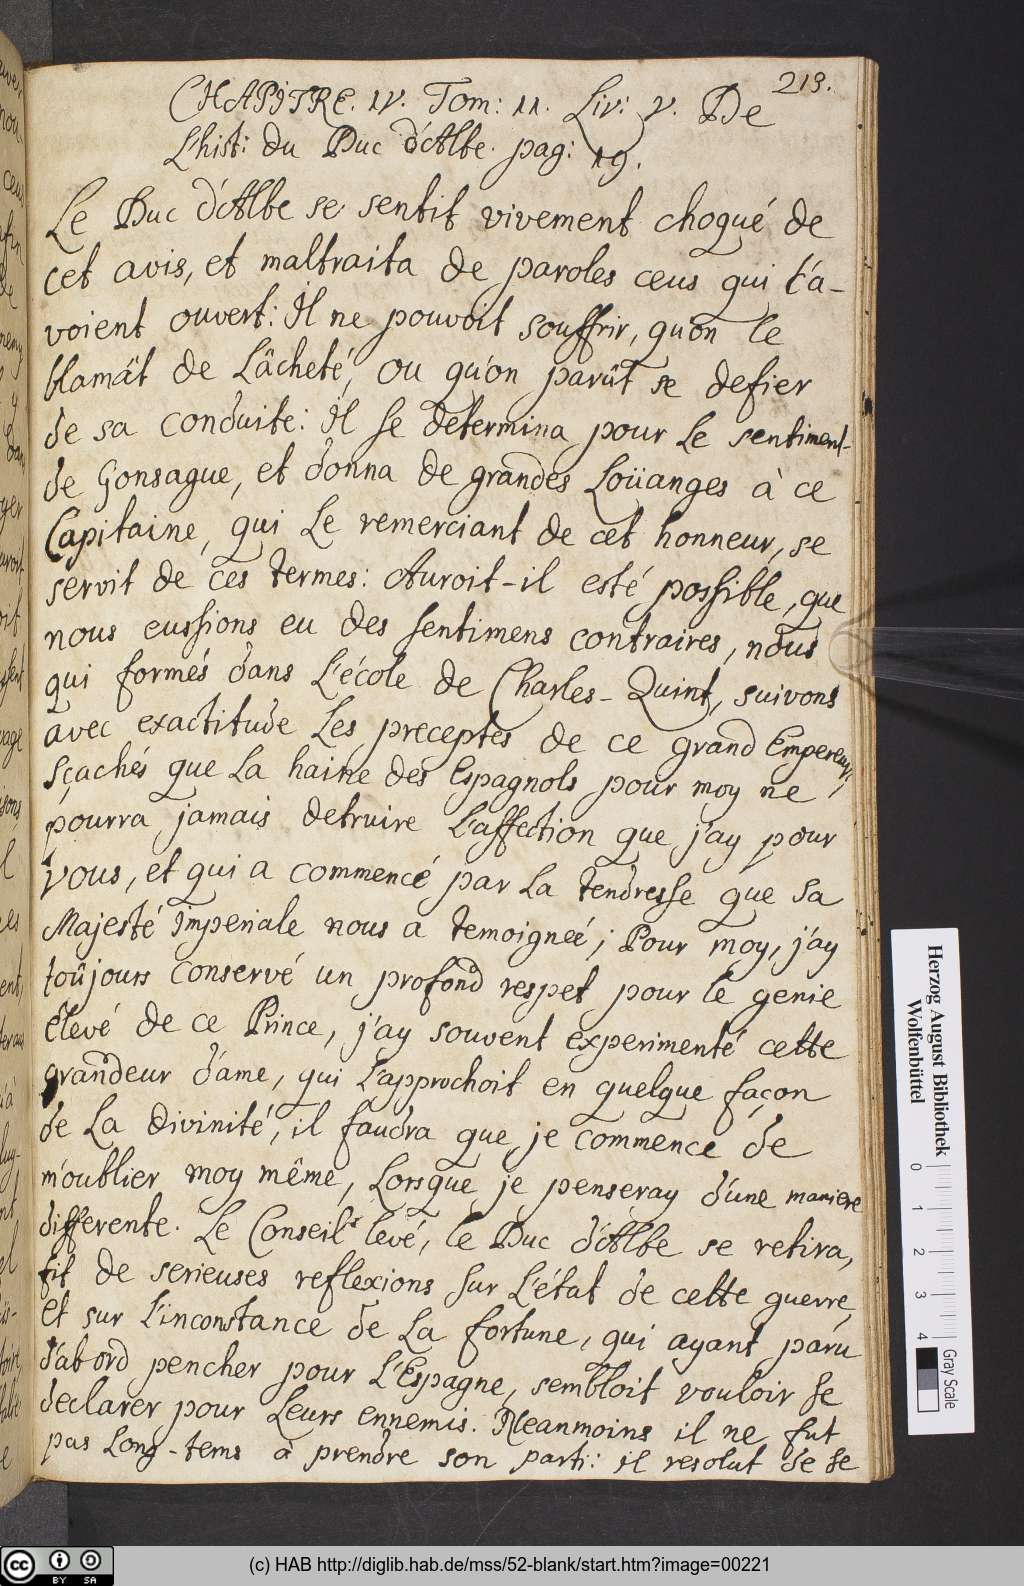 213.
CHAPITRE. IV. Tom: II. Liv: V. De
L'hist: du Duc d'Albe. pag: 19.
Le Duc d'Albe se sentit vivement choqué de
cet avis, et maltraita de paroles ceus qui l'a-
voient ouvert: Il ne pouvoit souffrir, qu'on le
blamât de Lâcheté, ou qu'on parût se defier
de sa conduite: Il se determina pour Le sentiment
de Gonsague, et donna de grandes Loüanges à ce
Capitaine, qui Le remerciant de cet honneur, se
servit de ces termes: Auroit-il esté possible, que
nous eussions eu des sentimens contraires, nous
qui formés dans L'école de Charles-Quint, suivons
avec exactitude Les preceptes de ce grand Empereur;
Sçachés que La haine des Espagnols pour moy ne
pourra jamais detruire L'affection que j'ay pour
vous, et qui a commencé par La tendresse que sa
Majesté Imperiale nous a temoigneé; Pour moy, j'ay
toûjours conservé un profond respet pour le genie
élevé de ce Prince, j'ay souvent experimenté cette
grandeur d'ame, qui L'approchoit en quelque façon
de La divinité, il faudra que je commence de
m'oublier moy même, Lorsque je penseray d'une maniere
differente. Le Conseil levé, le Duc d'Albe se retira,
fit de serieuses reflexions sur L'état de cette guerre,
et sur L'inconstance de La fortune, qui ayant paru
d'abord pencher pour L'Espagne, sembloit vouloir se
declarer pour Leurs ennemis. Neanmoins il ne fut
pas Long-tems à prendre son parti: il resolut de se
Herzog August Bibliothek
Wolfenbüttel
0 1 2 3 4
Gray Scale
cc BY SA
(c) HAB http://diglib.hab.de/mss/52-blank/start.htm?image=00221